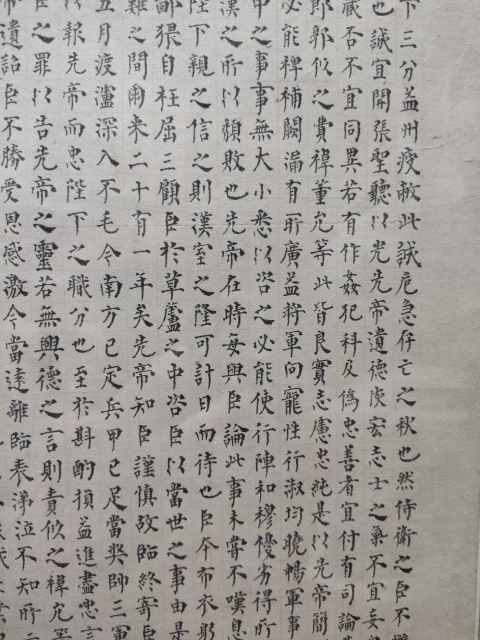 下三分益州疲敝此誠危急存亡之秋也然侍衛之臣不懈
也誠宜開張聖聽以光先帝遺德恢宏志士之氣不宜妄
臧否不宜同異若有作姦犯科及偽忠善者宜付有司論
郎郭攸之費禕董允等此皆良實志慮忠純是以先帝簡
必能裨補闕漏有所廣益將軍向寵性行淑均曉暢軍事
中之事事無大小悉以咨之必能使行陣和穆優劣得所
漢之所以頹敗也先帝在時每與臣論此事未嘗不嘆息
陛下親之信之則漢室之隆可計日而待也臣本布衣躬
鄙猥自枉屈三顧臣於草廬之中咨臣以當世之事由是
難之間爾來二十有一年矣先帝知臣謹慎故臨終寄臣
五月渡瀘深入不毛今南方已定兵甲已足當獎帥三軍
以報先帝而忠陛下之職分也至於斟酌損益進盡忠言
臣之罪以告先帝之靈若無興德之言則責攸之禕允等
帝遺詔臣不勝受恩感激今當遠離臨表涕泣不知所